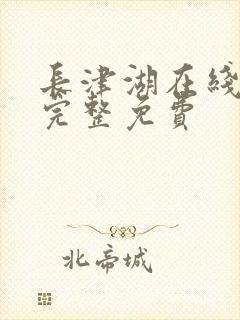 長津湖在綫
完整免費
北帝城